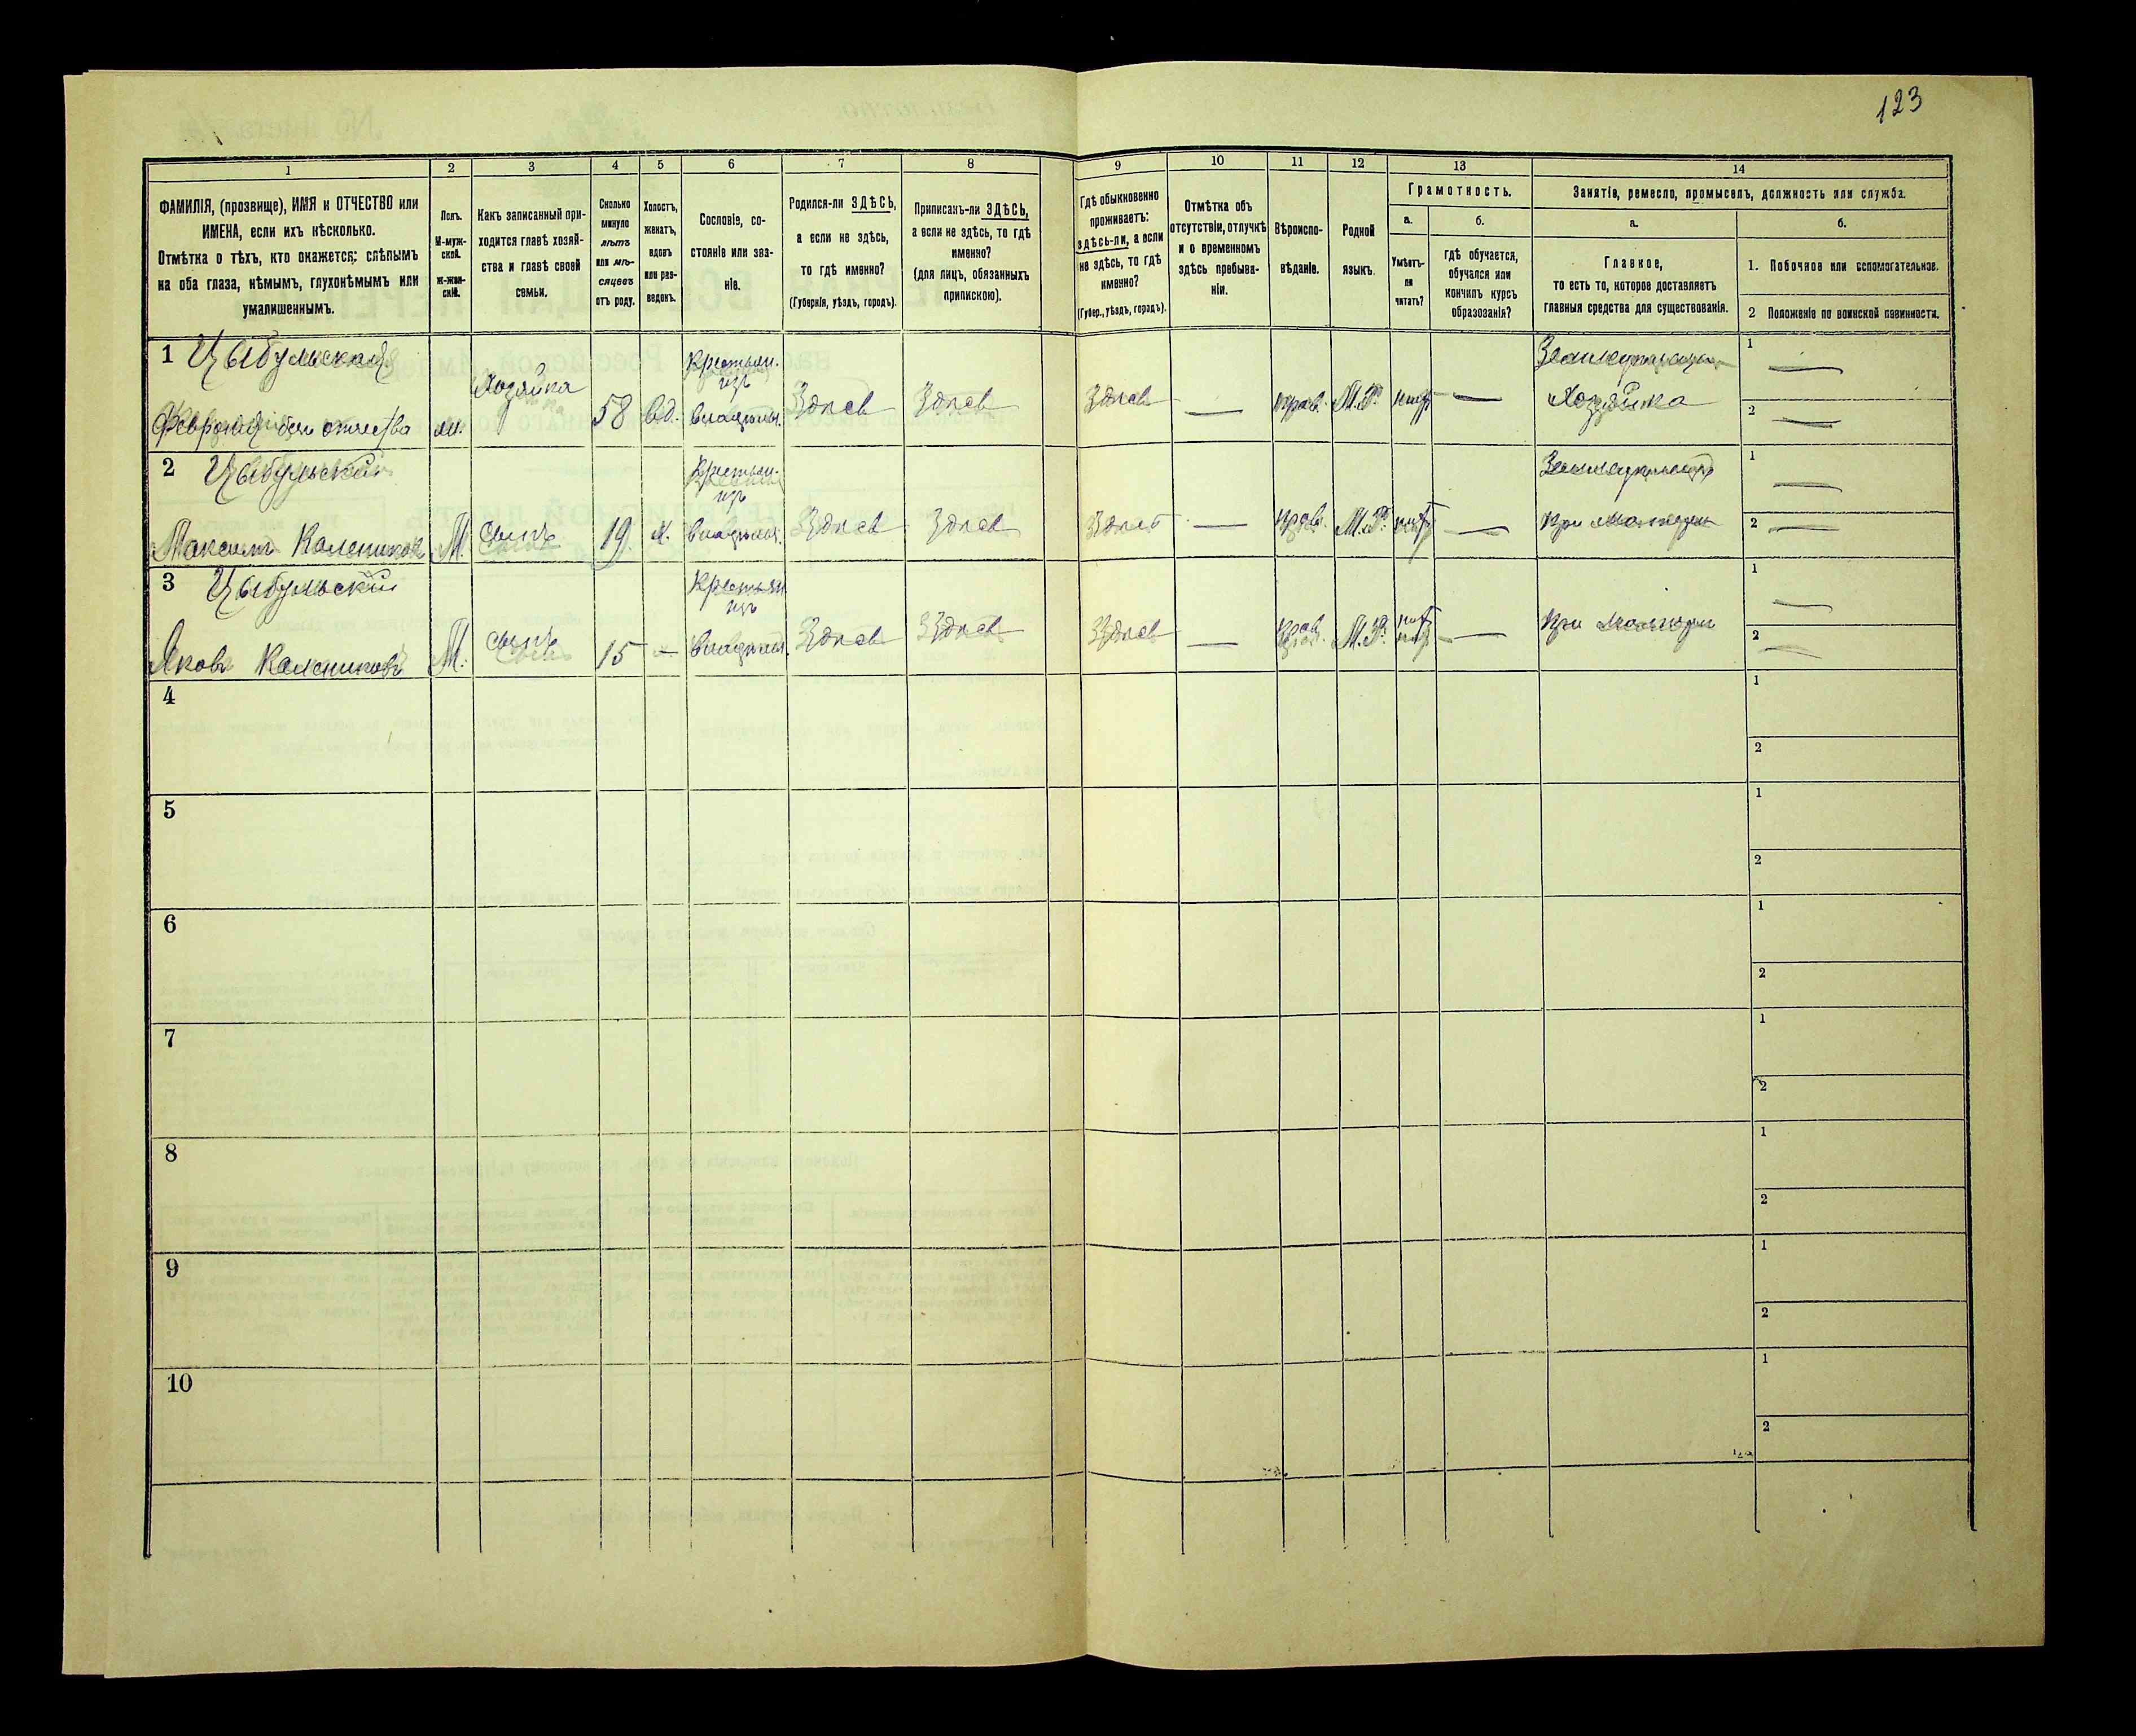 123
1
2
3
4
5
6
7
8
9
10
11
12
13
14
ФАМИЛІЯ, (прозвище), ИМЯ и ОТЧЕСТВО или
ИМЕНА, если ихъ нѣсколько.
Отмѣтка о тѣхъ, кто окажется: слѣпымъ
на оба глаза, нѣмымъ, глухонѣмымъ или
умалишеннымъ.
Полъ.
М-муж-
ской.
ж-жен-
скій.
Какъ записанный при-
ходится главѣ хозяй-
ства и главѣ своей
семьи.
Сколько
минуло
лѣтъ
или мѣ-
сяцевъ
отъ роду.
Холостъ,
женатъ,
вдовъ
или раз-
веденъ.
Сословіе, со-
стояніе или зва-
ніе.
Родился-ли ЗДѢСЬ,
а если не здѣсь,
то гдѣ именно?
(Губернія, уѣздъ, городъ).
Приписанъ-ли ЗДѢСЬ,
а если не здѣсь, то гдѣ
именно?
(для лицъ, обязанныхъ
припискою).
Гдѣ обыкновенно
проживаетъ:
здѣсь-ли, а если
не здѣсь, то гдѣ
именно?
(Губер., уѣздъ, городъ).
Отмѣтка объ
отсутствіи, отлучкѣ
и о временномъ
здѣсь пребыва-
ніи.
Вѣроиспо-
вѣданіе.
Родной
языкъ.
Грамотность.
а.
Умѣетъ-
ли
читать?
б.
Гдѣ обучается,
обучался или
кончилъ курсъ
образованія?
Занятіе, ремесло, промыселъ, должность или служба.
а.
Главное,
то есть то, которое доставляетъ
главныя средства для существованія.
б.
1. Побочное или вспомогательное.
2 Положеніе по воинской повинности.
1 Цыбульская
Феврония без отчества
Хозяйка
58
вд.
Крестьян.
изъ
владѣльч.
Здѣсь
Здѣсь
Здѣсь
—
прав.
М.Р.
нѣтъ
—
Хозяйка
1 —
2 —
2 Цыбульский
Максимъ Калениковъ
М.
Сынъ
19
х.
Крестьян.
изъ
владѣльч.
Здѣсь
Здѣсь
Здѣсь
—
прав.
М.Р.
нѣтъ
—
при матери
1 —
2 —
3 Цыбульский
Яковъ Калениковъ
М.
Сынъ
15
—
Крестьян
изъ
владѣльч.
Здѣсь
Здѣсь
Здѣсь
—
прав.
М.Р.
нѣтъ
—
при матери
1 —
2 —
4
1
2
5
1
2
6
1
2
7
1
2
8
1
2
9
1
2
10
1
2